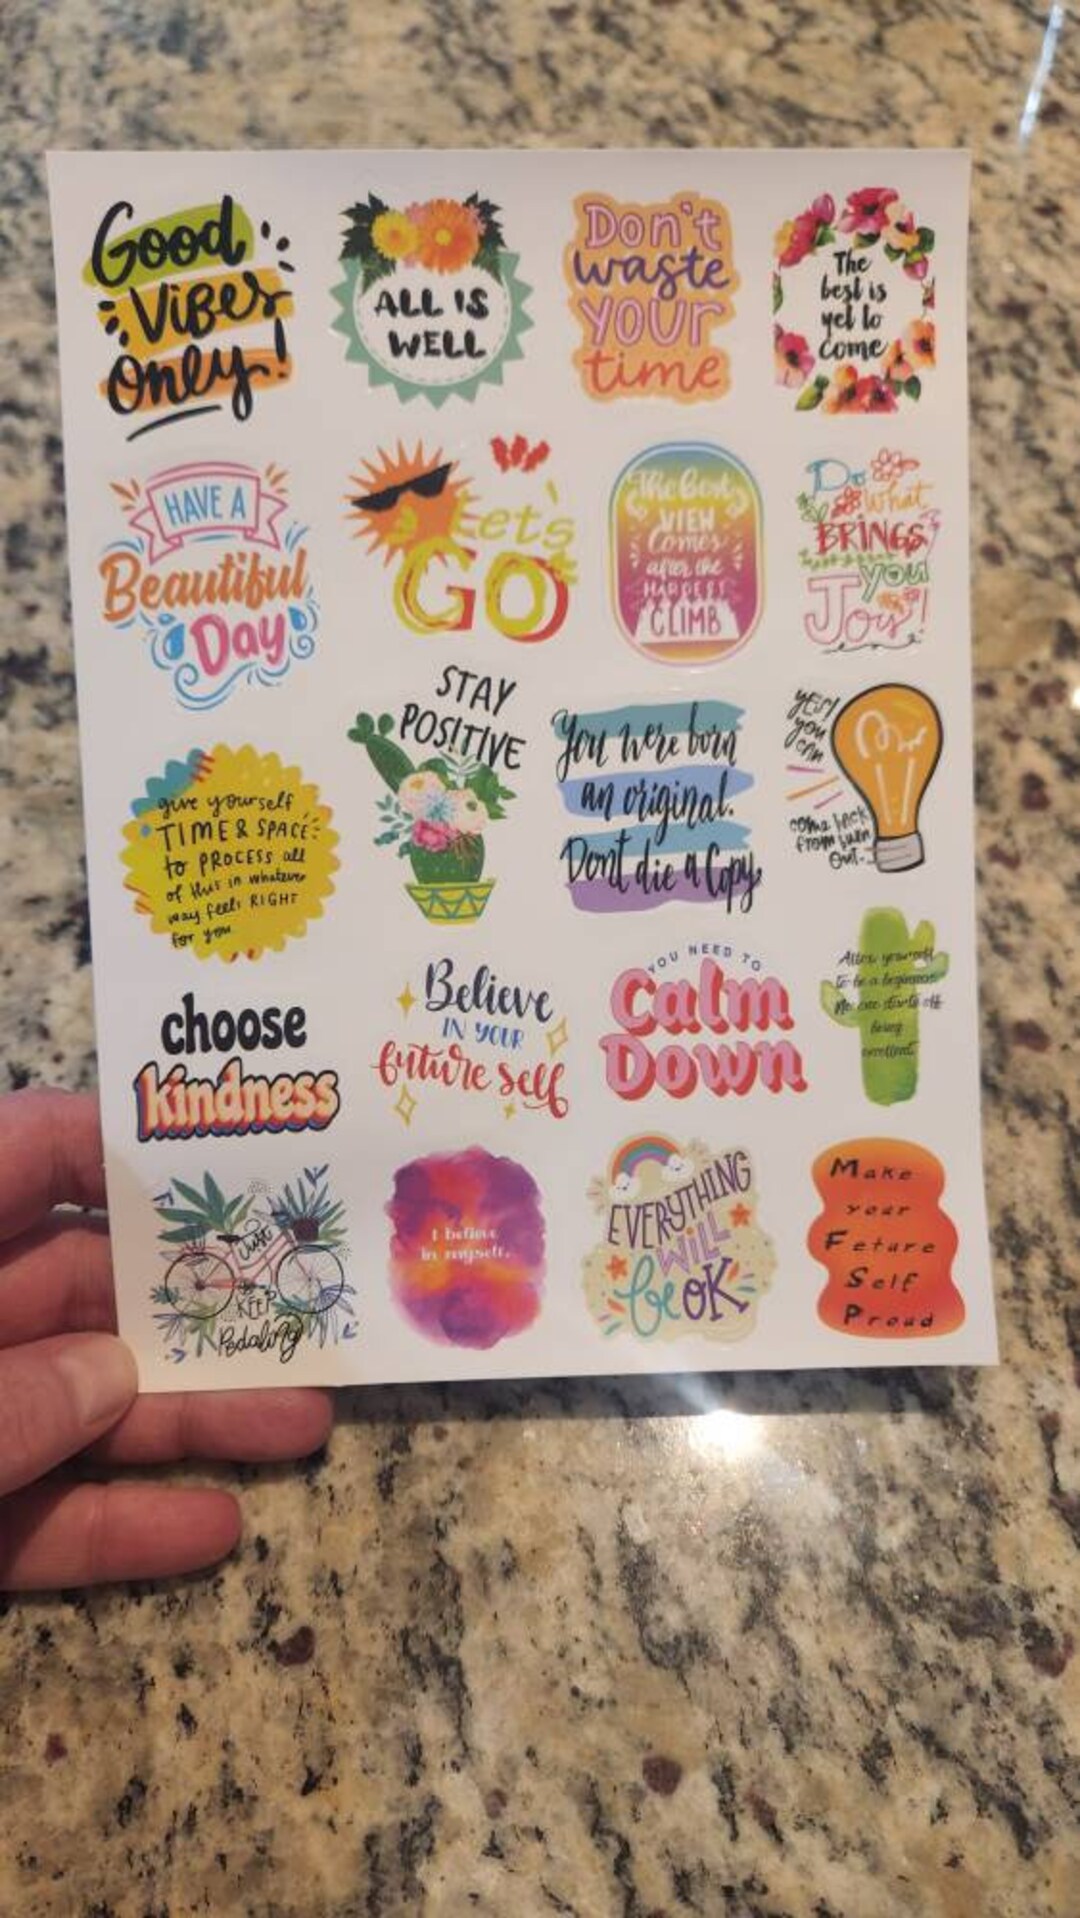 Good
Vibes
Only!
ALL IS
WELL
Don't
waste
your
time
The
best is
yet to
come
HAVE A
Beautiful
Day
Let's
GO
The Best
VIEW
Comes
after the
HARDEST
CLIMB
Do
what
BRINGS
you
Joy!
give yourself
TIME & SPACE
to PROCESS all
of this in whatever
way feels RIGHT
for you
STAY
POSITIVE
You were born
an original.
Dont die a Copy
YES!
you
can
come back
from burn
out...
choose
kindness
Believe
IN YOUR
future self
YOU NEED TO
Calm
Down
Allow yourself
to be a beginner
No one starts off
being
excellent.
Just
KEEP
Pedaling
I believe
in myself.
EVERYTHING
WiLL
be OK
Make
your
Feture
Self
Proud